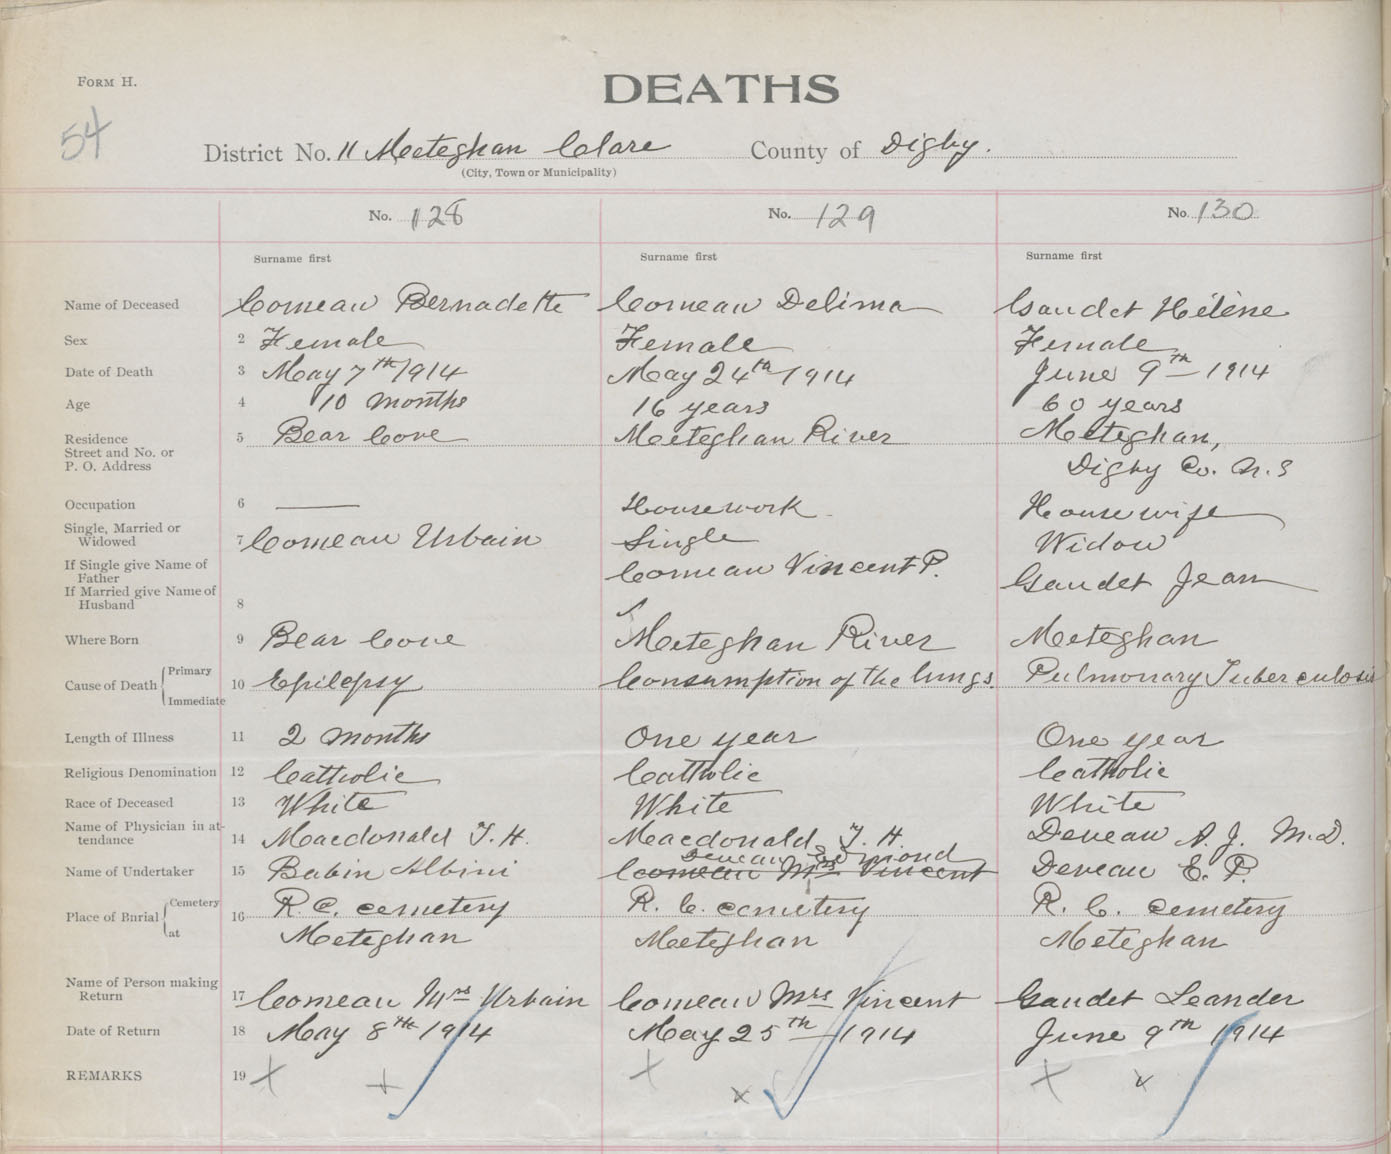 FORM H.
DEATHS
54
District No. 11 Meeteghan Clare County of Digby.
(City, Town or Municipality)
No. 128 No. 129 No. 130
Surname first Surname first Surname first
Name of Deceased Comeau Bernadette Comeau Delima Gaudet Hélène
Sex 2 Female Female Female
Date of Death 3 May 7th 1914 May 24th 1914 June 9th 1914
Age 4 10 months 16 years 60 years
Residence 5 Bear Cove Meeteghan River Meteghan,
Street and No. or
P. O. Address Digby Co. N. S
Occupation 6 —— Housework Housewife
Single, Married or
Widowed 7 Comeau Urbain Single Widow
If Single give Name of
Father Comeau Vincent P. Gaudet Jean
If Married give Name of
Husband 8
Where Born 9 Bear Cove Meeteghan River Meteghan
Cause of Death Primary
Immediate 10 Epilepsy Consumption of the lungs. Pulmonary Tuberculosis
Length of Illness 11 2 months One year One year
Religious Denomination 12 Catholic Catholic Catholic
Race of Deceased 13 White White White
Name of Physician in at-
tendance 14 Macdonald T. H. Macdonald T. H. Deveau A. J. M.D.
Deveau Edmond
Name of Undertaker 15 Babin Albini Comeau Mrs Vincent Deveau E. P.
Place of Burial Cemetery 16 R. C. cemetery R. C. cemetery R. C. cemetery
at Meteghan Meeteghan Meteghan
Name of Person making
Return 17 Comeau Mrs Urbain Comeau Mrs Vincent Gaudet Leander
Date of Return 18 May 8th 1914 May 25th 1914 June 9th 1914
REMARKS 19